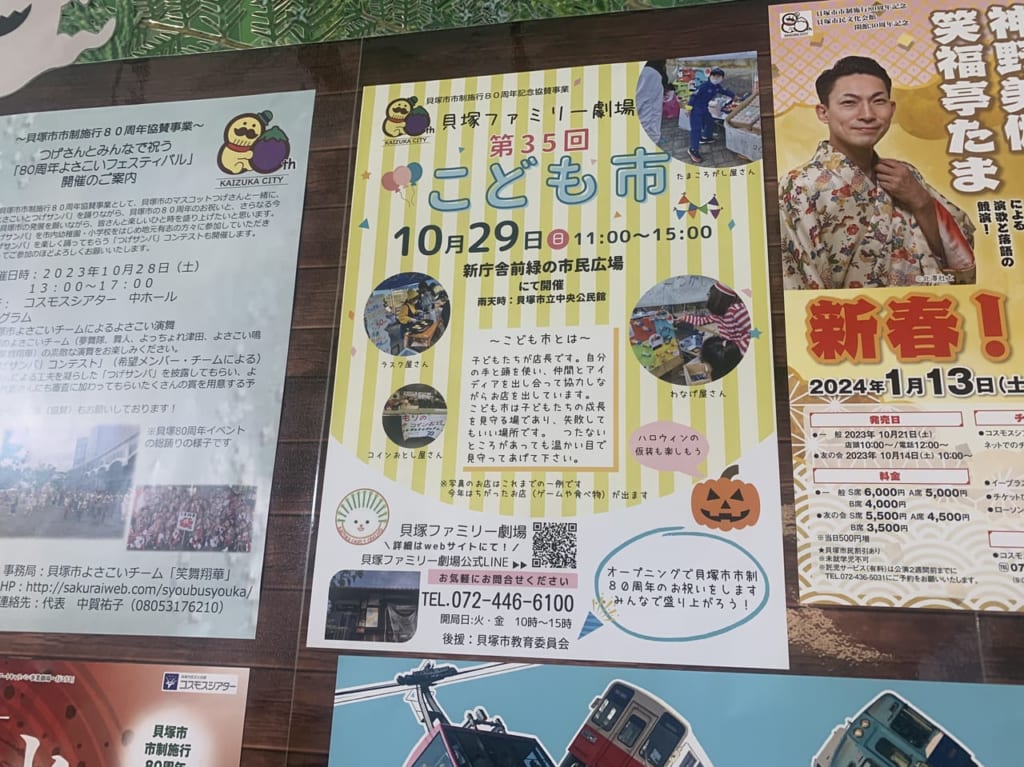 ～貝塚市市制施行８０周年協賛事業～
つげさんとみんなで祝う
「80周年よさこいフェスティバル」
開催のご案内
th
KAIZUKA CITY
市市制施行８０周年協賛事業として、貝塚市のマスコットつげさんと一緒に、
よさこいとつげサンバ」を踊りながら、貝塚市の８０周年のお祝いと、さらなる今
開催日時：２０２３年１０月２８日（土）
１３：００～１７：００
コスモスシアター　中ホール
グラム
市よさこいチームによるよさこい演舞
（協賛）もお願いしております！
※貝塚80周年イベント
の総踊りの様子です
事務局：貝塚市よさこいチーム「笑舞翔華」
HP：http://sakuraiweb.com/syoubusyouka/
連絡先：代表　中賀祐子（08053176210）
貝塚市市制施行８０周年記念協賛事業
KAIZUKA CITY
貝塚ファミリー劇場
第35回
こども市
たまころがし屋さん
10月29日 日 11:00～15:00
新庁舎前緑の市民広場
にて開催
雨天時：貝塚市立中央公民館
ラスク屋さん
コインおとし屋さん
わなげ屋さん
～こども市とは～
子どもたちが店長です。自分
の手と頭を使い、仲間とアイ
ディアを出し合って協力しな
がらお店を出しています。
こども市は子どもたちの成長
を見守る場であり、失敗して
もいい場所です。　つたない
ところがあっても温かい目で
見守ってあげて下さい。
ハロウィンの
仮装も楽しもう
※写真のお店はこれまでの一例です
今年はちがったお店（ゲームや食べ物）が出ます
貝塚ファミリー劇場
＼詳細はwebサイトにて！／
貝塚ファミリー劇場公式LINE ▶▶
お気軽にお問合せください
TEL.072-446-6100
開局日:火・金　10時～15時
後援：貝塚市教育委員会
オープニングで貝塚市市制
８０周年のお祝いをします
みんなで盛り上がろう！
貝塚市市制施行80周年記念
貝塚市民文化会館
開館30周年記念
神野美伽
笑福亭たま
による
演歌と落語の
競演！
新春！
2024年1月13日（土
発売日
●一 般 2023年 10月21日(土)
店頭10:00～/電話12:00～
●友の会 2023年 10月14日(土) 10:00～
料金
●一般 S席 6,000円 A席 5,000円
B席 4,000円
●友の会 S席 5,500円 A席 4,500円
B席 3,500円
※当日500円増
★貝塚市民割引あり
★未就学児不可
★託児サービス(有料)は公演2週間前までに
TEL.072-436-5031にご予約をお願いいたします。
●コスモスシ
ネットでのチ
●イープラス
●チケット
●ローソン
コスモスシアター
貝塚市
市制施行
80周年